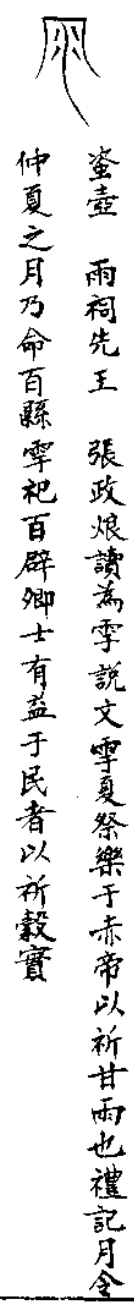 𧊒壺 雨祠先王 張政烺讀為雩說文雩夏祭樂于赤帝以祈甘雨也禮記月令
仲夏之月乃命百縣雩祀百辟卿士有益于民者以祈穀實